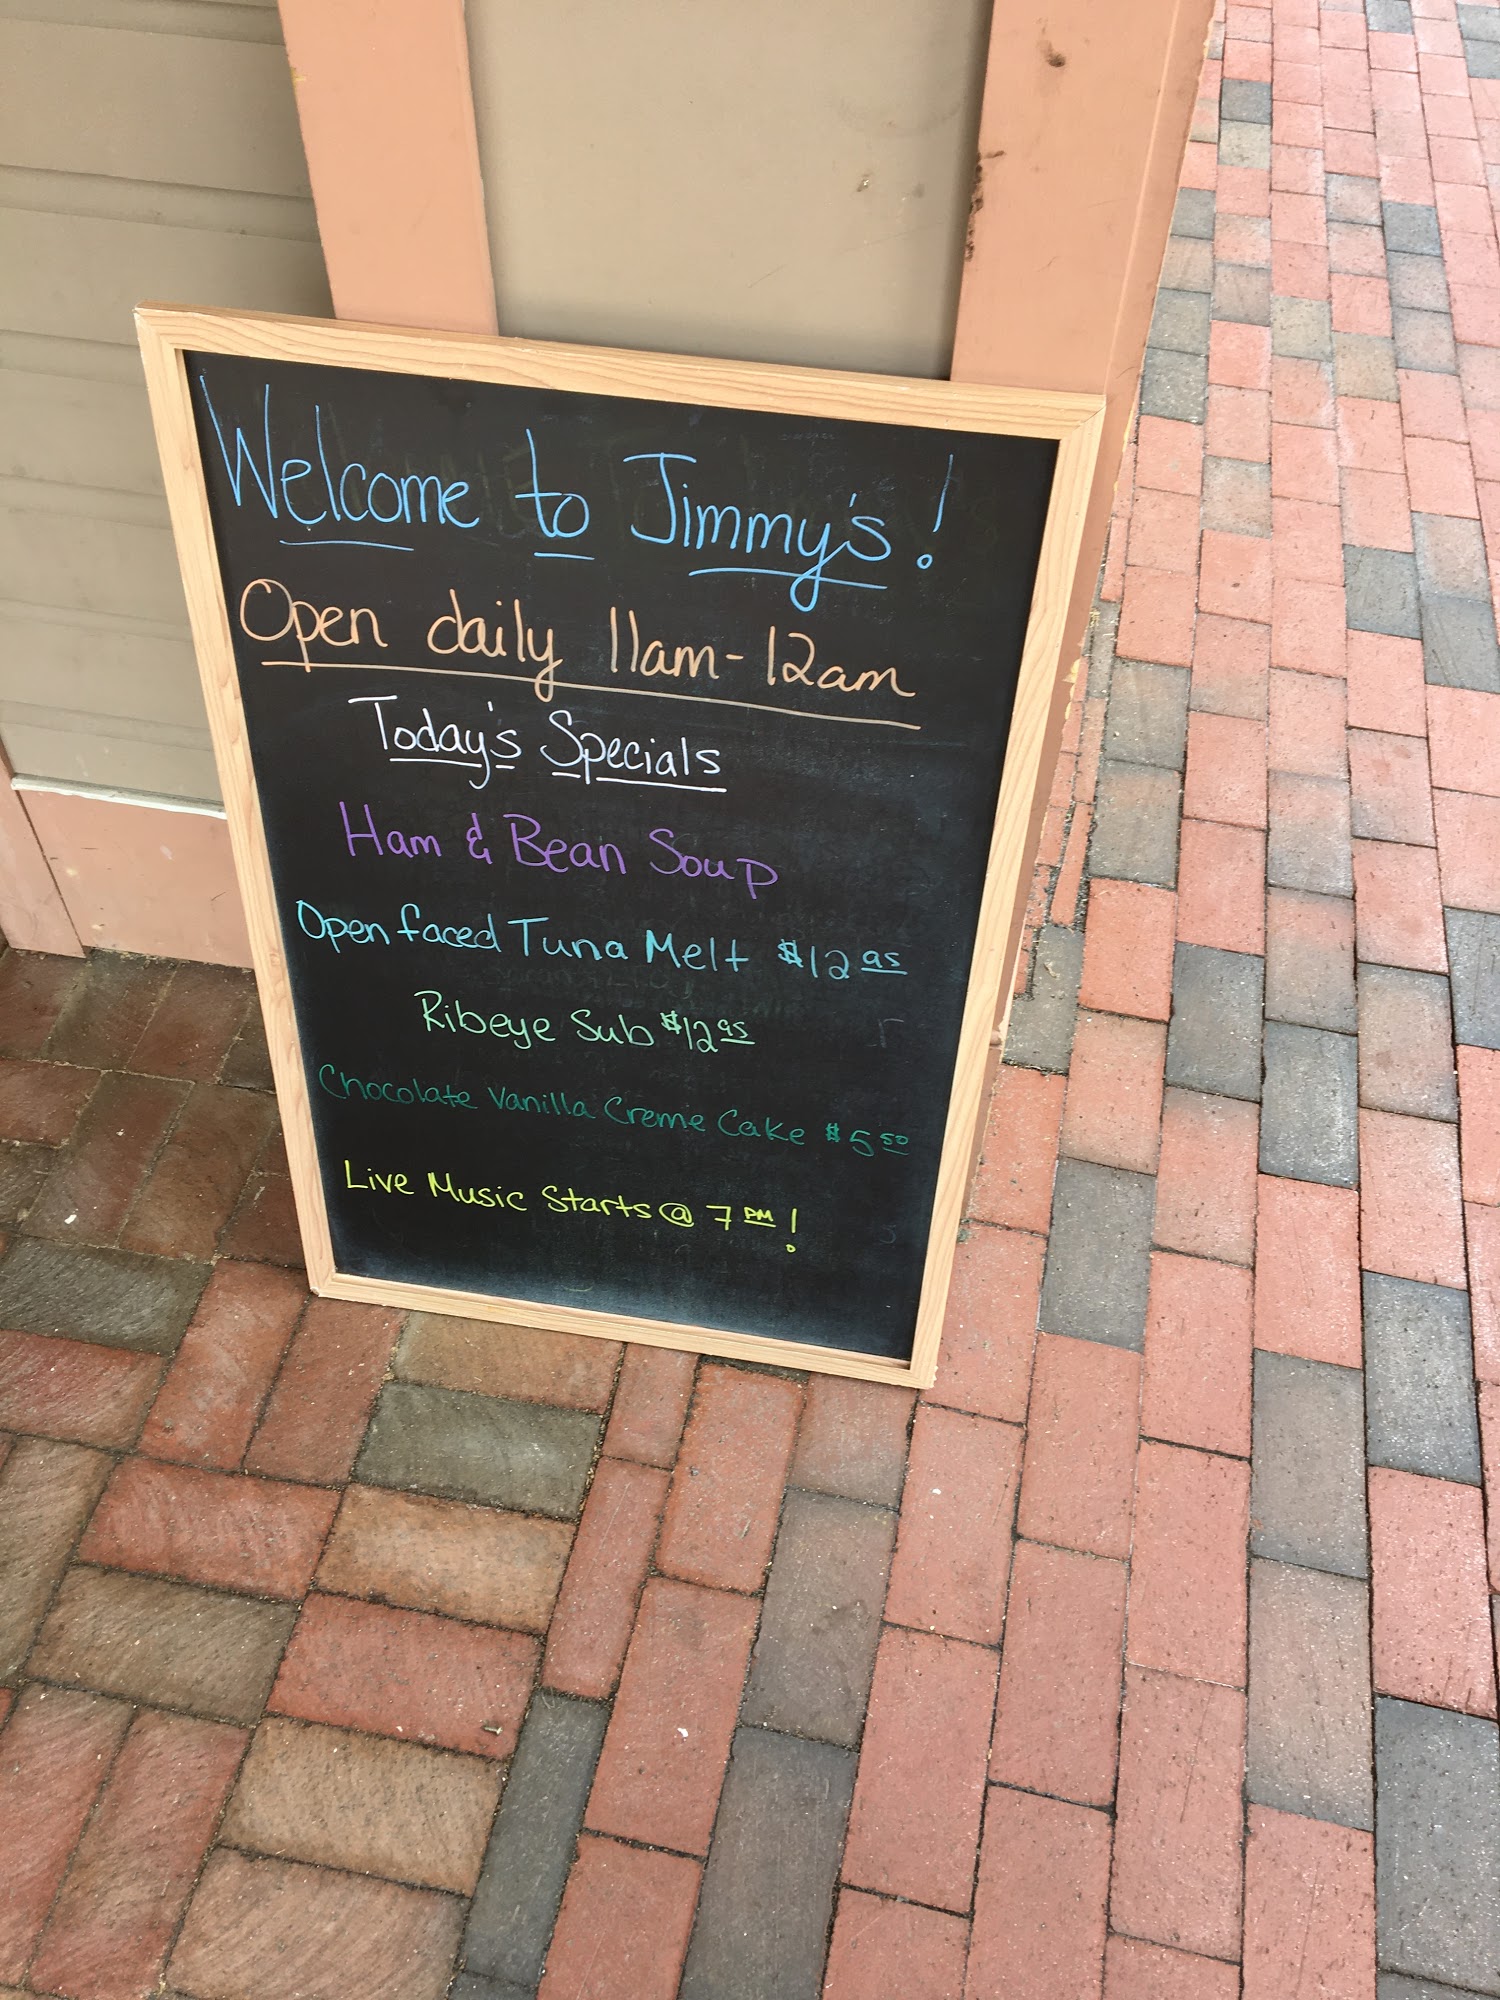 Welcome to Jimmy's!
Open daily 11am-12am
Today's Specials
Ham & Bean Soup
Open faced Tuna Melt $12.95
Ribeye Sub $12.95
Chocolate Vanilla Creme Cake $5.50
Live Music Starts @ 7PM!